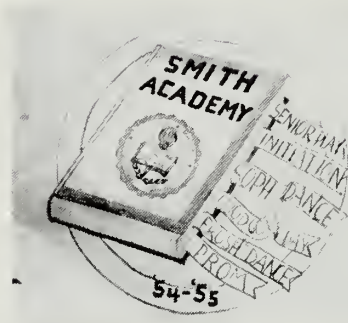 SMITH
ACADEMY
INITIATIONS
SOPH DANCE
FROSH DANCE
PROM
'54-'55